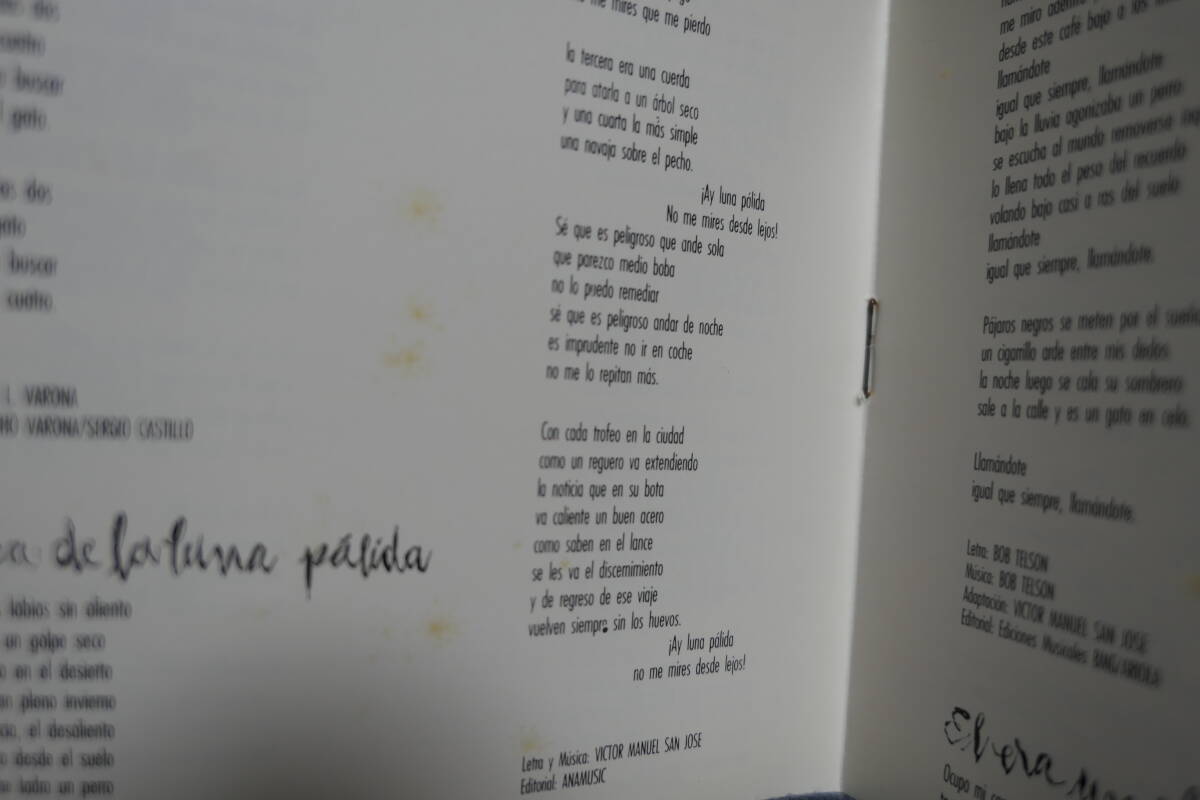 dos
cuatro
buscar
gato
dos
gato
buscar
cuatro.
L. VARONA
VARONA/SERGIO CASTILLO
de la luna pálida
labios sin aliento
un golpe seco
en el desierto
pleno invierno
el desaliento
desde el suelo
ladra un perro
me mires que me pierdo
la tercera era una cuerda
para atarla a un árbol seco
y una cuarta la más simple
una navaja sobre el pecho.
¡Ay luna pálida
No me mires desde lejos!
Sé que es peligroso que ande sola
que parezco medio boba
no lo puedo remediar
sé que es peligroso andar de noche
es imprudente no ir en coche
no me lo repitan más.
Con cada trofeo en la ciudad
como un reguero va extendiendo
la noticia que en su bota
va caliente un buen acero
como saben en el lance
se les va el discernimiento
y de regreso de ese viaje
vuelven siempre sin los huevos.
¡Ay luna pálida
no me mires desde lejos!
Letra y Música: VICTOR MANUEL SAN JOSE
Editorial: ANAMUSIC
me miro
desde este café bajo a los
llamándote
igual que siempre, llamándote
bajo la lluvia agonizaba un perro
se escucha al mundo removerse
lo llena todo el peso del recuerdo
volando bajo casi a ras del suelo
llamándote
igual que siempre, llamándote.
Pájaros negros se meten por el
un cigarrillo arde entre mis dedos
la noche luego se cala su sombrero
sale a la calle y es un gato en celo.
Llamándote
igual que siempre, llamándote.
Letra: BOB TELSON
Música: BOB TELSON
Adaptación: VICTOR MANUEL SAN JOSE
Editorial: Ediciones Musicales BMG/ARIOLA
El era
Ocupo mi